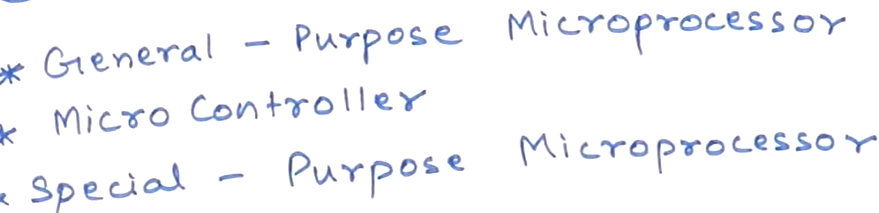 * General - Purpose Microprocessor
* Micro Controller
* Special - Purpose Microprocessor